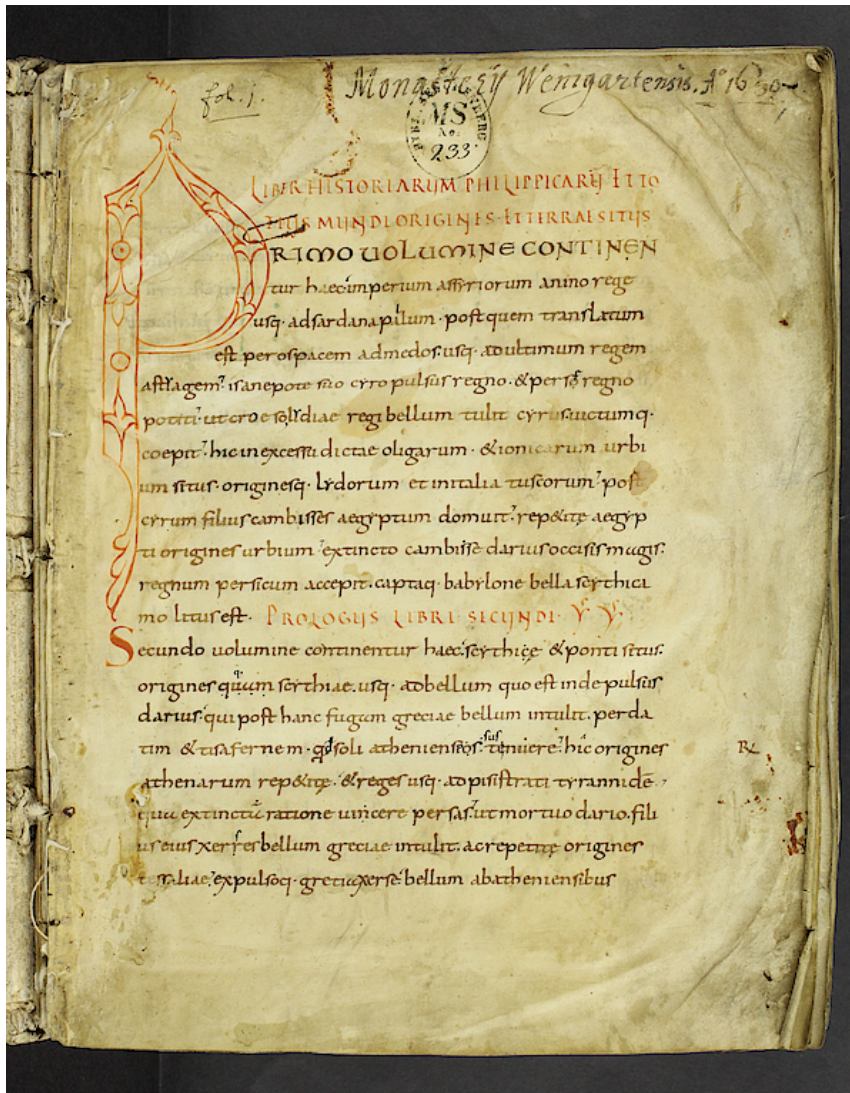 fol. 1.
Monasterij Weingartensis. Aº 1630
MS
No.
233
LIBER HISTORIARUM PHILIPPICARU ET TO
TIUS MUNDI ORIGINES ET TERRAE SITUS
PRIMO UOLUMINE CONTINEN
tur haec imperium assyriorum a nino rege
usq· ad sardanapallum· post quem translatum
est per ospacem ad medos· usq· ad ultimum regem
astyagem· is a nepote suo cyro pulsus regno· & perse regno
potiti· ut croeso lydiae regi bellum tulit cyrus· uictumq·
coepit· hic in excessu dictae oligarum· & ionicarum urbi
um situs· originesq· lydorum et in italia tuscorum· post
cyrum filius cambisses aegyptum domuit· rep&ite aegyp
ti origines urbium· extincto cambisse darius occisis magis·
regnum persicum accepit· captaq· babylone bella scythica
molitus est· PROLOGUS LIBRI SECUNDI·
Secundo uolumine continentur haec· scythiçe & ponti situs·
origines scythiae· usq· ad bellum quo est inde pulsus
darius· qui post hanc fugam greciae bellum intulit· per da
tim & tisafernem· soli athenienses· hic origines
athenarum rep&itę· & reges usq· ad pisistrati tyrannidē·
qua ratione uincere persas· ut mortuo dario· fili
us eius xerses bellum greciae intulit· ac repetitę origines
tessaliae· expulsoq· xerse· bellum ab atheniensibus